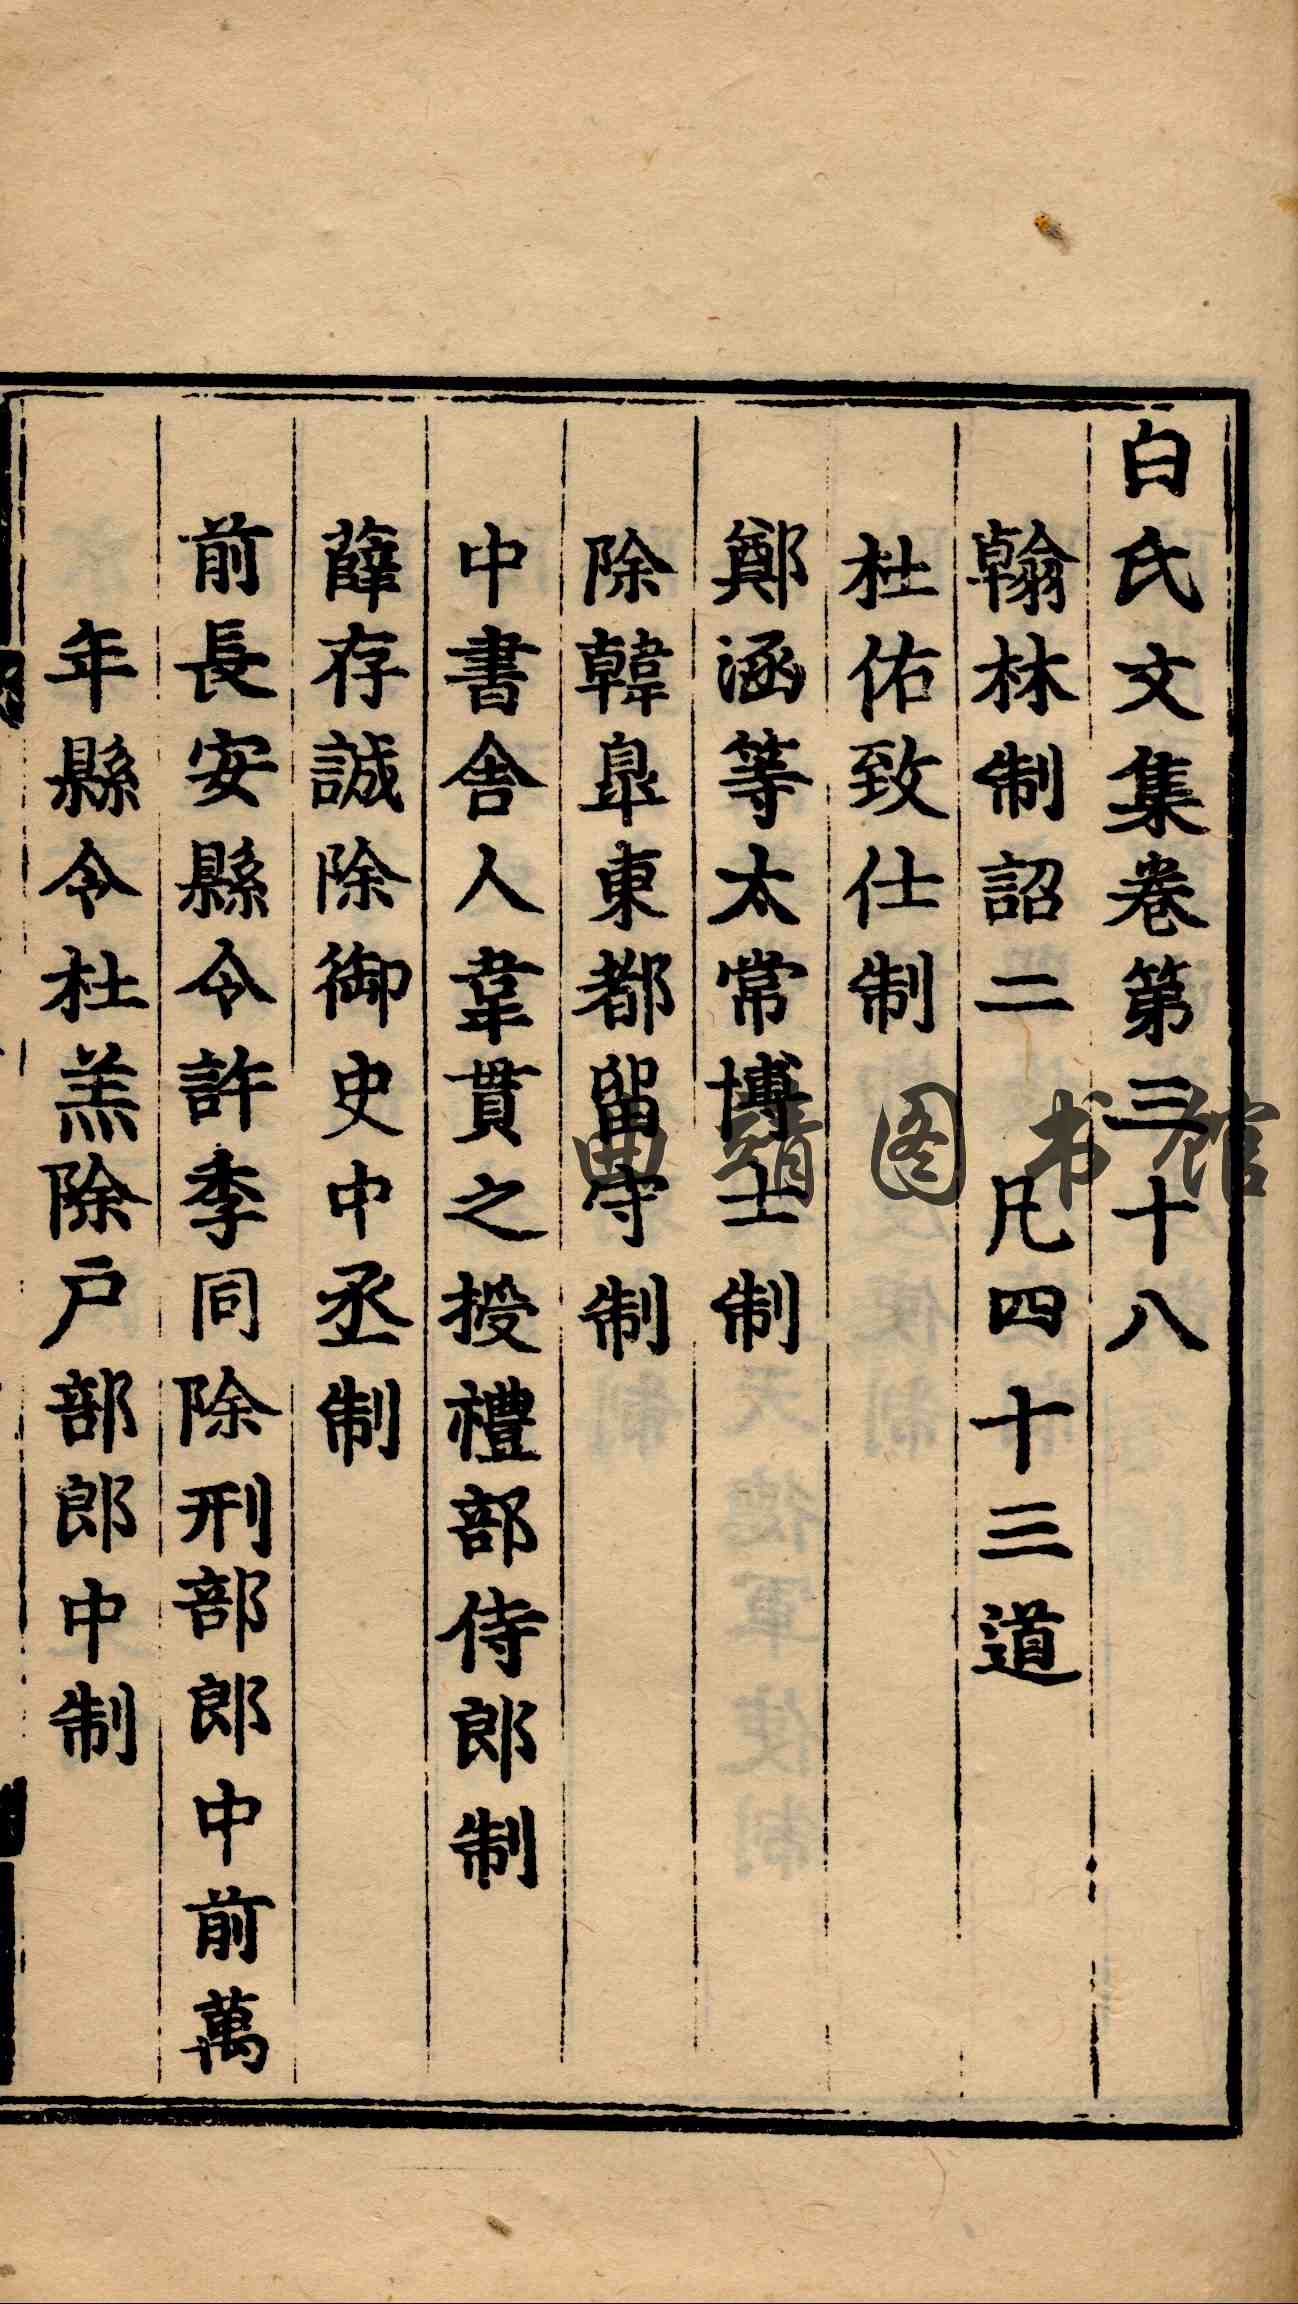 白氏文集卷第三十八
翰林制詔二　凡四十三道
杜佑致仕制
鄭涵等太常博士制
除韓臯東都留守制
中書舍人韋貫之授禮部侍郎制
薛存誠除御史中丞制
前長安縣令許季同除刑部郎中前萬
年縣令杜羔除戶部郎中制
图书馆